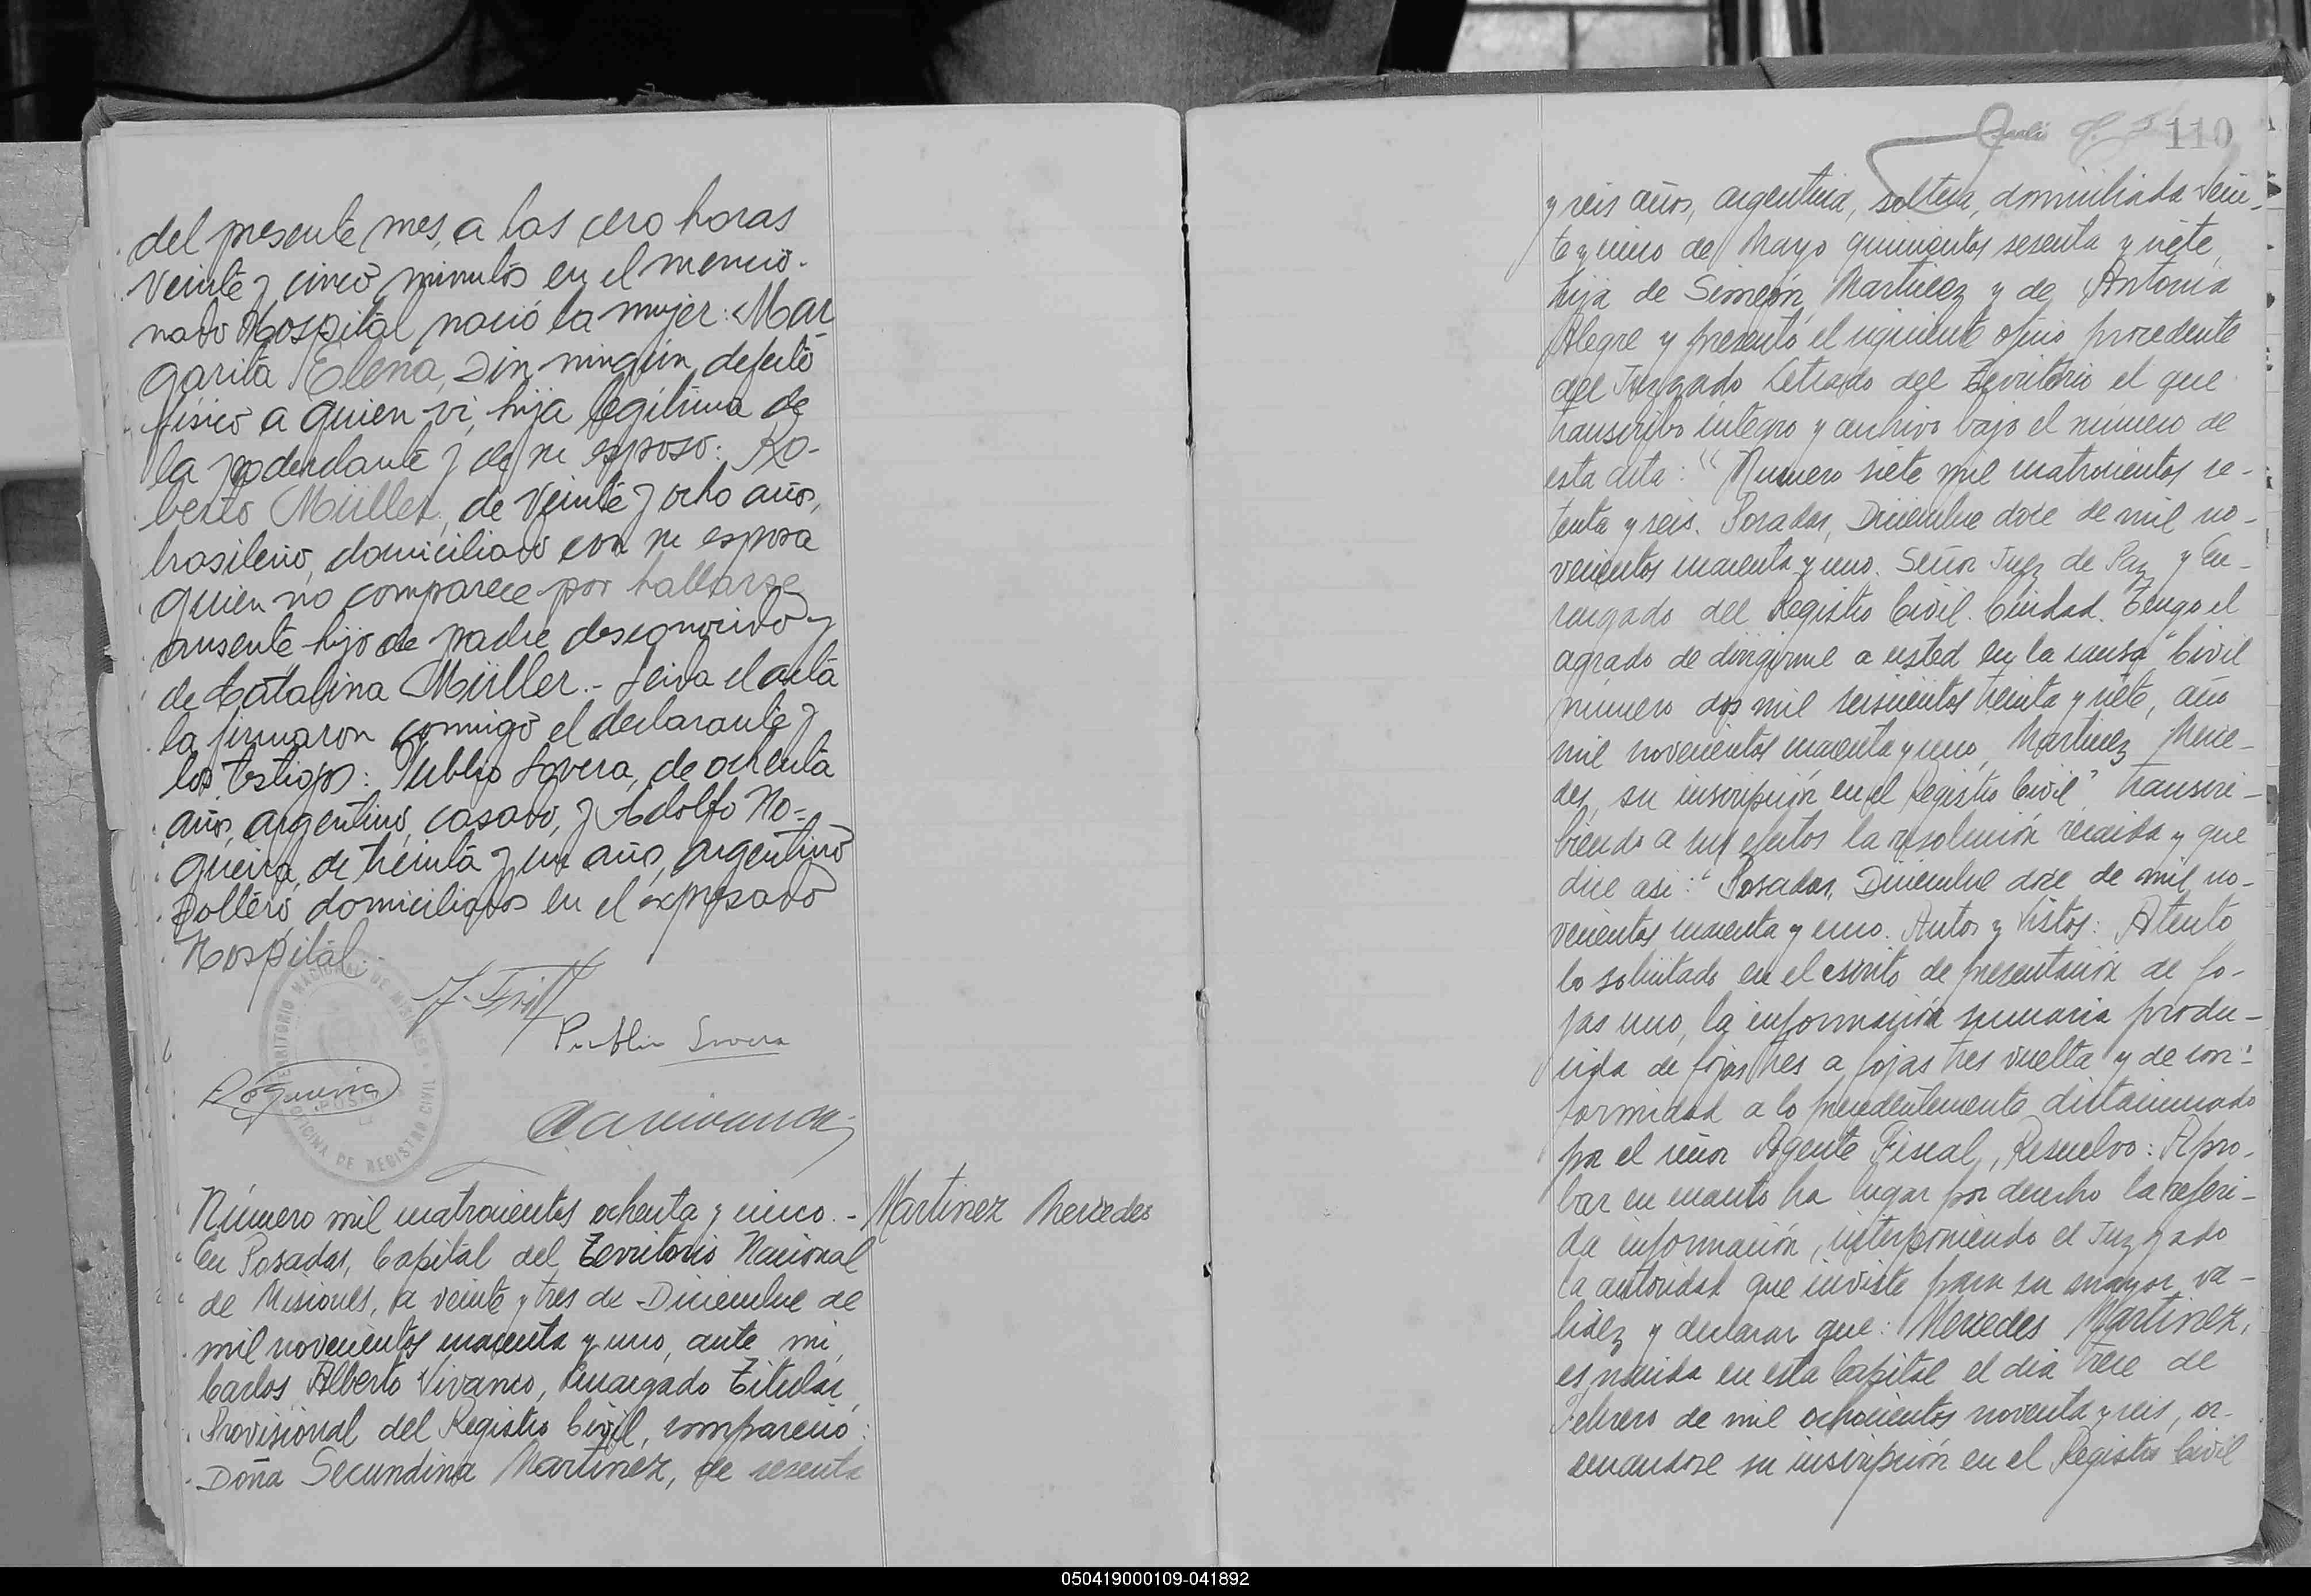 del presente mes, a las cero horas
veinte y cinco minutos en el mencio-
nado Hospital nació la mujer: Mar
garita Elena, sin ningún defecto
físico a quien vi, hija legítima de
la poderdante y de su esposo: Ro-
berto Müller, de veinte y ocho años,
brasileño, domiciliado con su esposa
quien no comparece por hallarse
ausente, hijo de padre desconocido y
de Catalina Müller.- Leida el acta
la firmaron conmigo el declarante y
los testigos: Publio Lovera, de ochenta
años, argentino, casado, y Adolfo No-
gueira, de treinta y un años, argentino
soltero, domiciliados en el expresado
Hospital.
TERRITORIO NACIONAL DE MISIONES
POSADAS
OFICINA DE REGISTRO CIVIL
Publio Lovera
Nogueira
Número mil cuatrocientos ochenta y cinco.-
Martinez Mercedes
En Posadas, Capital del Territorio Nacional
de Misiones, a veinte y tres de Diciembre de
mil novecientos cuarenta y uno, ante mi,
Carlos Alberto Vivanco, Encargado Titular
Provisional del Registro Civil, compareció:
Doña Secundina Martinez, de sesenta
110
y seis años, argentina, soltera, domiciliada Vein-
te y cinco de Mayo quinientos sesenta y siete,
hija de Simeón Martinez y de Antonia
Alegre y presentó el siguiente oficio procedente
del Juzgado Letrado del Territorio el que
transcribo integro y archivo bajo el número de
esta acta: "Numero siete mil cuatrocientos se-
tenta y seis. Posadas, Diciembre doce de mil no-
vecientos cuarenta y uno. Señor Juez de Paz y En-
cargado del Registro Civil. Ciudad. Tengo el
agrado de dirigirme a usted en la causa "Civil
número dos mil seiscientos treinta y siete, año
mil novecientos cuarenta y uno, Martinez Merce-
des, su inscripción en el Registro Civil" transcri-
biendo a sus efectos la resolución recaida y que
dice asi: "Posadas, Diciembre doce de mil no-
vecientos cuarenta y uno. Autos y Vistos: Atento
lo solicitado en el escrito de presentación de fo-
jas uno, la información sumaria produ-
cida de fojas tres a fojas tres vuelta y de con-
formidad a lo precedentemente dictaminado
por el señor Agente Fiscal, Resuelvo: Apro-
bar en cuanto ha lugar por derecho la referi-
da información, interponiendo el Juzgado
la autoridad que inviste para su mayor va-
lidez y declarar que: Mercedes Martinez,
es nacida en esta Capital el dia trece de
Febrero de mil ochocientos noventa y seis, or-
denandose su inscripción en el Registro Civil
050419000109-041892